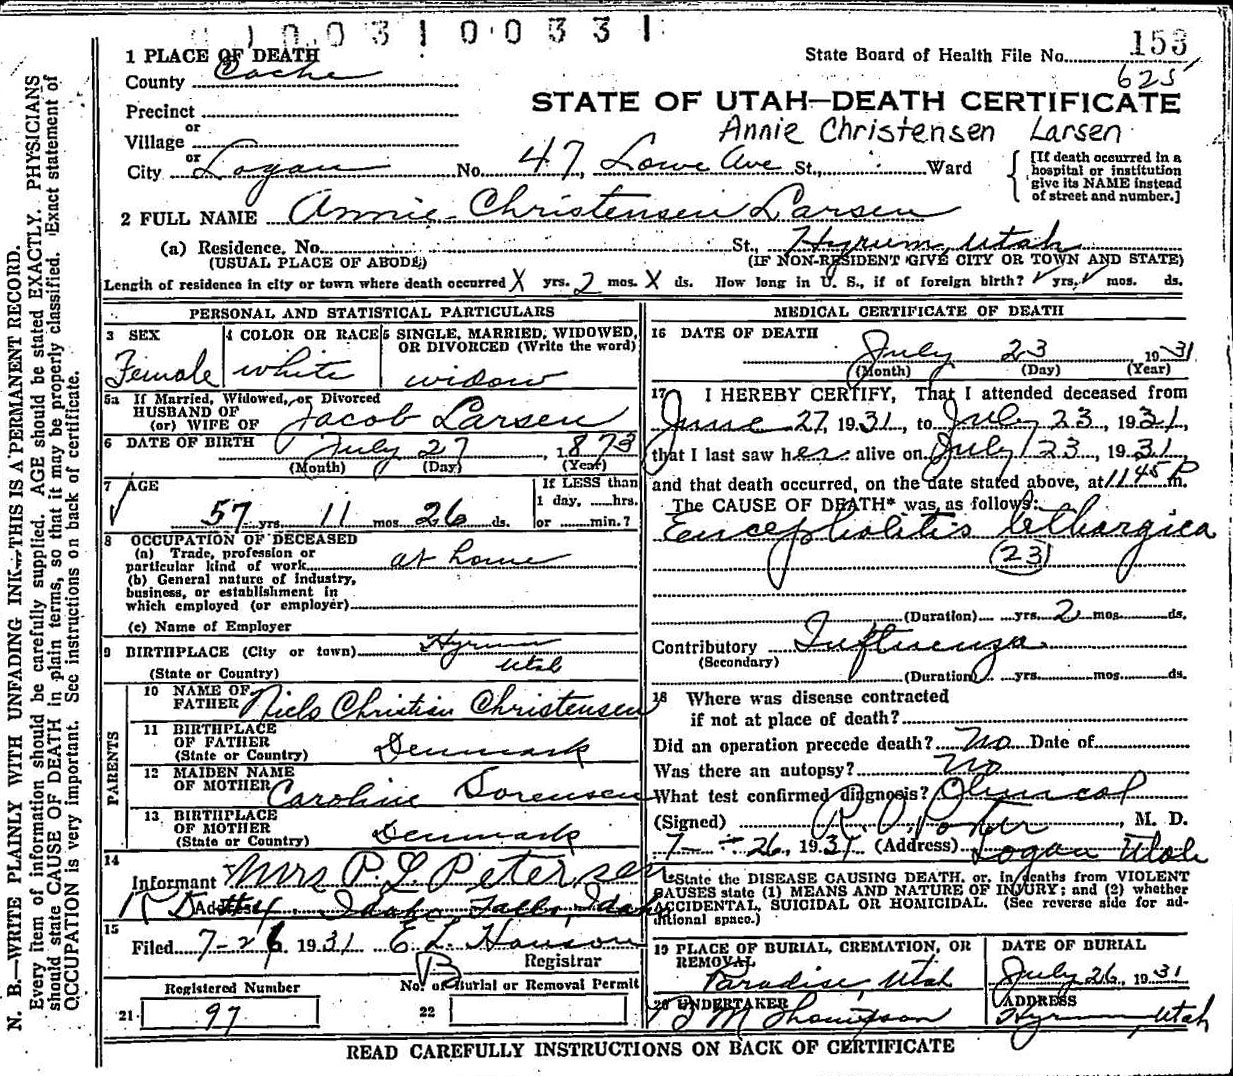 10031 00331
1 PLACE OF DEATH
State Board of Health File No. 153
625
County Cache
STATE OF UTAH—DEATH CERTIFICATE
Precinct
Annie Christensen Larsen
or
Village
or
City Logan No. 47, Lowe Ave St., Ward
[If death occurred in a
hospital or institution
give its NAME instead
of street and number.]
2 FULL NAME Annie Christensen Larsen
(a) Residence, No. St., Hyrum, Utah
(USUAL PLACE OF ABODE) (IF NON-RESIDENT GIVE CITY OR TOWN AND STATE)
Length of residence in city or town where death occurred X yrs. 2 mos. X ds. How long in U. S., if of foreign birth? yrs. mos. ds.
PERSONAL AND STATISTICAL PARTICULARS
3 SEX
Female
4 COLOR OR RACE
white
5 SINGLE, MARRIED, WIDOWED,
OR DIVORCED (Write the word)
widow
5a If Married, Widowed, or Divorced
HUSBAND OF
(or) WIFE OF Jacob Larsen
6 DATE OF BIRTH July 27, 1873
(Month) (Day) (Year)
7 AGE
57 yrs. 11 mos. 26 ds.
If LESS than
1 day, hrs.
or min.?
8 OCCUPATION OF DECEASED
(a) Trade, profession or
particular kind of work at home
(b) General nature of industry,
business, or establishment in
which employed (or employer)
(c) Name of Employer
9 BIRTHPLACE (City or town) Hyrum
Utah
(State or Country)
PARENTS
10 NAME OF
FATHER Niels Christian Christensen
11 BIRTHPLACE
OF FATHER Denmark
(State or Country)
12 MAIDEN NAME
OF MOTHER Caroline Sorensen
13 BIRTHPLACE
OF MOTHER Denmark
(State or Country)
14
Informant Mrs P. L. Petersen
RD #4 Address Idaho Falls, Idaho
15
Filed 7-26 1931 E L Hanson
Registrar
Registered Number
No. of Burial or Removal Permit
21 97
22
MEDICAL CERTIFICATE OF DEATH
16 DATE OF DEATH
July 23 1931
(Month) (Day) (Year)
17 I HEREBY CERTIFY, That I attended deceased from
June 27, 1931, to July 23, 1931,
that I last saw her alive on July 23, 1931,
and that death occurred, on the date stated above, at 11 45 P m.
The CAUSE OF DEATH* was as follows:
Encephalitis lethargica
(23)
(Duration) yrs. 2 mos. ds.
Contributory Influenza
(Secondary)
(Duration) yrs. mos. ds.
18 Where was disease contracted
if not at place of death?
Did an operation precede death? No Date of
Was there an autopsy? No
What test confirmed diagnosis? Clinical
(Signed) R. O. Porter, M. D.
7-26, 1931 (Address) Logan Utah
*State the DISEASE CAUSING DEATH, or, in deaths from VIOLENT
CAUSES state (1) MEANS AND NATURE OF INJURY; and (2) whether
ACCIDENTAL, SUICIDAL OR HOMICIDAL. (See reverse side for ad-
ditional space.)
19 PLACE OF BURIAL, CREMATION, OR
REMOVAL
Paradise, Utah
DATE OF BURIAL
July 26, 1931
20 UNDERTAKER
M Thompson
ADDRESS
Hyrum, Utah
READ CAREFULLY INSTRUCTIONS ON BACK OF CERTIFICATE
N. B.—WRITE PLAINLY WITH UNFADING INK—THIS IS A PERMANENT RECORD.
Every item of information should be carefully supplied. AGE should be stated EXACTLY. PHYSICIANS
should state CAUSE OF DEATH in plain terms, so that it may be properly classified. Exact statement of
OCCUPATION is very important. See instructions on back of certificate.